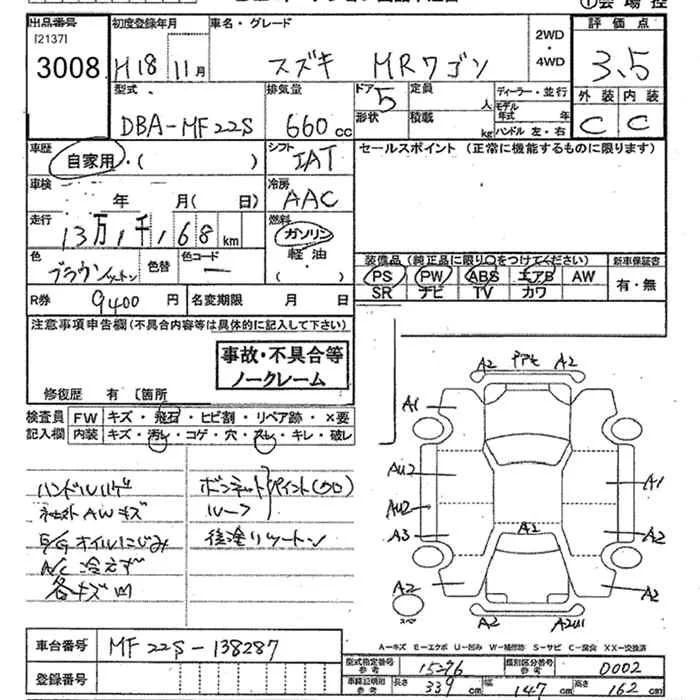 ①会場控
出品番号 初度登録年月 車名・グレード 評価点
[2137] 2WD・4WD
3008 H18 11月 スズキ MRワゴン 3.5
型式 排気量 ドア 定員 人 ディーラー・並行 外装 内装
DBA-MF22S 660cc 5 モデル年式 年 C C
形状 積載 kg ハンドル 左・右
車歴 シフト セールスポイント (正常に機能するものに限ります)
自家用・( ) IAT
車検 年 月( 日) 冷房 AAC
走行 13万1千168km 燃料 ガソリン
軽油
( )
色 ブラウンツートン 色替 色コード ー
装備品 (純正品に限り○をつけてください) 新車保証書
PS PW ABS エアB AW 有・無
SR ナビ TV カワ
R券 9400円 名変期限 月 日
注意事項申告欄(不具合内容等は具体的に記入して下さい)
事故・不具合等
ノークレーム
修復歴 有 [箇所
検査員 FW キズ・飛石・ヒビ割・リペア跡・×要
記入欄 内装 キズ・汚レ・コゲ・穴・スレ・キレ・破レ
ハンドルハゲ ボンネット ペイント(クロ)
AWキズ ルーフ
E/Gオイルにじみ 後塗りツートン
A/C冷えず
各キズM
A2 A2
A1
AU2 A1
AU2
A3 A1 A2
A2 A2
スペア A2
A-キズ E-エクボ U-凹み W-補修跡 S-サビ C-腐食 XX-交換済
車台番号 MF22S-138287
登録番号
型式指定番号 参考 15276 類別区分番号 参考 0002
車検証明和 参考 長さ 339cm 幅 147cm 高さ 162cm